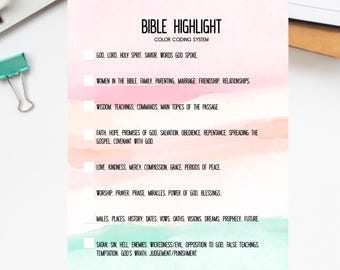 BIBLE HIGHLIGHT
COLOR CODING SYSTEM
GOD, LORD, HOLY SPIRIT, SAVIOR, WORDS GOD SPOKE.
WOMEN IN THE BIBLE, FAMILY, PARENTING, MARRIAGE, FRIENDSHIP, RELATIONSHIPS.
WISDOM, TEACHINGS, COMMANDS, MAIN TOPICS OF THE PASSAGE.
FAITH, HOPE, PROMISES OF GOD, SALVATION, OBEDIENCE, REPENTANCE, SPREADING THE
GOSPEL, COVENANT WITH GOD.
LOVE, KINDNESS, MERCY, COMPASSION, GRACE, PERIODS OF PEACE.
WORSHIP, PRAYER, PRAISE, MIRACLES, POWER OF GOD, BLESSINGS.
MALES, PLACES, HISTORY, DATES, VOWS, OATHS, VISIONS, DREAMS, PROPHECY, FUTURE.
SATAN, SIN, HELL, ENEMIES, WICKEDNESS/EVIL, OPPOSITION TO GOD, FALSE TEACHINGS,
TEMPTATION, GOD'S WRATH, JUDGEMENT/PUNISHMENT.